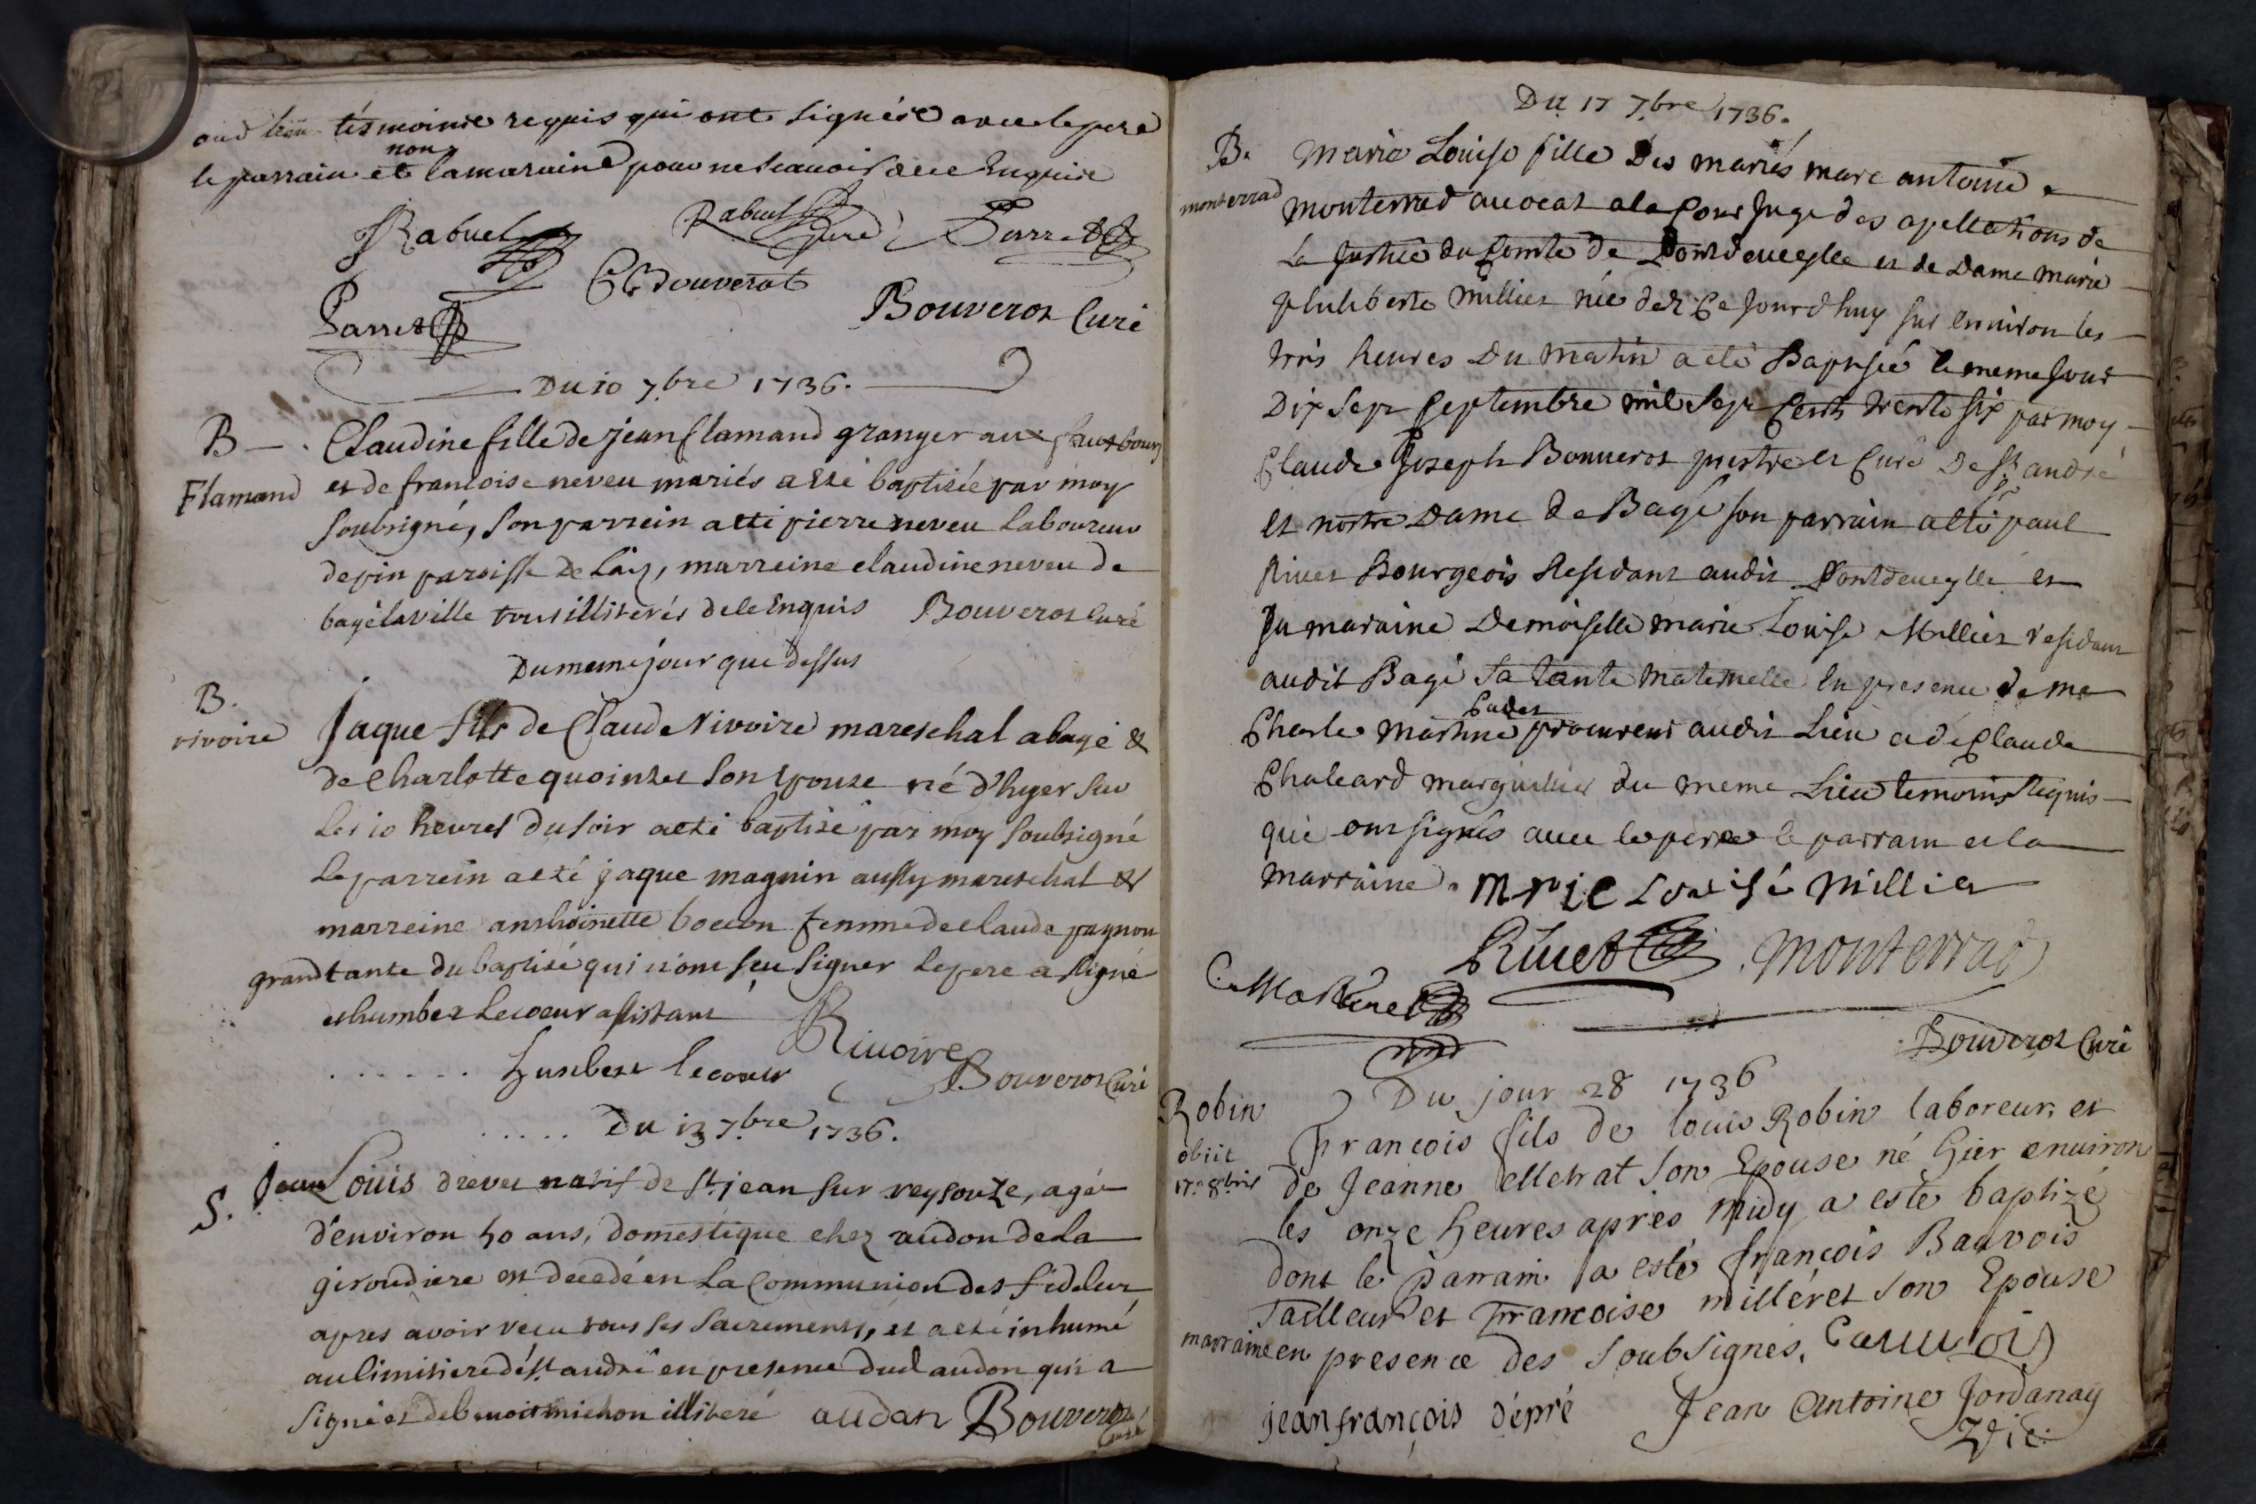 aud lieu tésmoins requis qui ont signés avec le pere
non
le parrain et la maraine pour ne scavoir de ce Enquise
JRabuel Rabuel Curé Parret
C G Bouverot
Parret Bouverot Curé
Du 10 7.bre 1736.
B Claudine fille de jean flamand granger aux fauxbourg
Flamand et de francoise neveu mariés a été baptisée par moy
soubsigné, son parrein a etti pierre neveu laboureur
depin paroisse de Laiz, marreine claudine neveu de
bagé la ville tous illiterés de ce Enquis Bouverot Curé
Du meme jour que dessus
B.
rivoire Jaque fils de Claude Rivoire mareschal a bagé &
de Charlotte quointet son Epouse né d'hyer sur
les 10 heures du soir a eté baptisé par moy soubsigné
le parrein a eté jaque magnin aussy mareschal &
marreine anthoinette boccon femme de claude pagnon
grand tante du baptisé qui n'ont sçeu signer le pere a signé
et humbert Lecoeur assistant
humbert lecoeur Rivoire Bouverot Curé
Du 13 7.bre 1736.
S. Jean Louis drevet natif de St jean sur reysouze, agé
d'environ 50 ans, domestique chez audon de la
giroudiere est decedé en la Communion des fideles
apres avoir recu tous ses sacrements, et a eté inhumé
au Cimitiere de St andré en presence dud audon qui a
signé et de benoit michon illiteré audan Bouverot Curé
Du 17 7.bre 1736.
B. Marie Louise fille Des mariés marc antoine
monterrad Monterrad avocat a la Cour Juge des apellations de
la Justice du Comte de Pontdeveylle et de Dame marie
philiberte Millier née dez Ce jourd'huy sur environ les
trois heures Du matin a eté Baptisée le meme jour
Dix sept septembre mil sept Cent trente six par moy
Claude Joseph Bouverot prestre et Curé De St andré
et nostre Dame de Bagé son parrain a etté sr paul
Rivet Bourgeois Residant audit Pontdeveylle et
sa maraine Demoiselle marie Louise Millier residant
audit Bagé sa tante maternelle en presence de me
Cadet
Charle Martine procureur audit Lieu et de Claude
Chaleard marguillier du meme Lieu temoins Requis
qui ont signés avec le pere le parrain et la
marraine. Mrie Louise Millier
Rivet Monterrad
C. Martine
Bouverot Curé
Du jour 28 1736
Robin François fils de louis Robin laboreur, et
obiit de Jeanne elletrat son Epouse né hier environ
17.e 8.bris les onze heures apres midy a esté baptizé
dont le parrain a esté françois Bauvois
Tailleur et Francoise milléret son Epouse
marraine en presence des soubsignés. Bauvois
jean françois dépré Jean Antoine Jordanay
Vic.